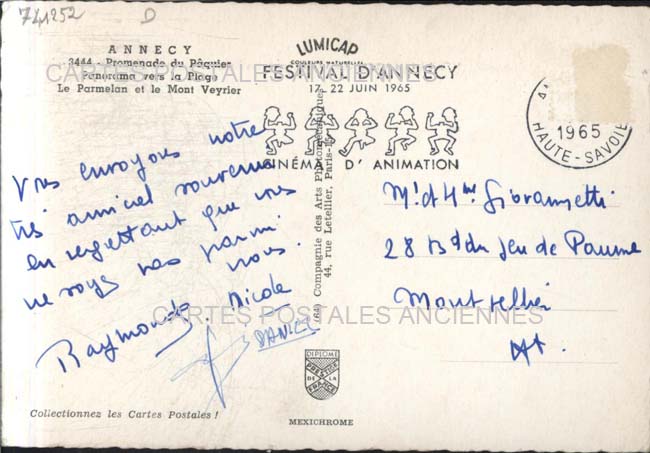 741252 D
ANNECY
3444 - Promenade du Pâquier
Panorama vers la Plage
Le Parmelan et le Mont Veyrier
LUMICAP
COULEURS NATURELLES
FESTIVAL D'ANNECY
17-22 JUIN 1965
CINÉMA D'ANIMATION
1965
HAUTE-SAVOIE
CARTES POSTALES ANCIENNES
Vous envoyons notre
très amical souvenir
en regrettant que vous
ne soyez pas parmi
nous.
Raymonde Nicole
DANIEL
(64) Compagnie des Arts Photomécaniques
44, rue Letellier, Paris-15
Mr et Mme Giovannetti
28 Bd du Jeu de Paume
Montpellier
Ht.
CARTES POSTALES ANCIENNES
DIPLOME
PRESTIGE
DE LA
FRANCE
Collectionnez les Cartes Postales !
MEXICHROME